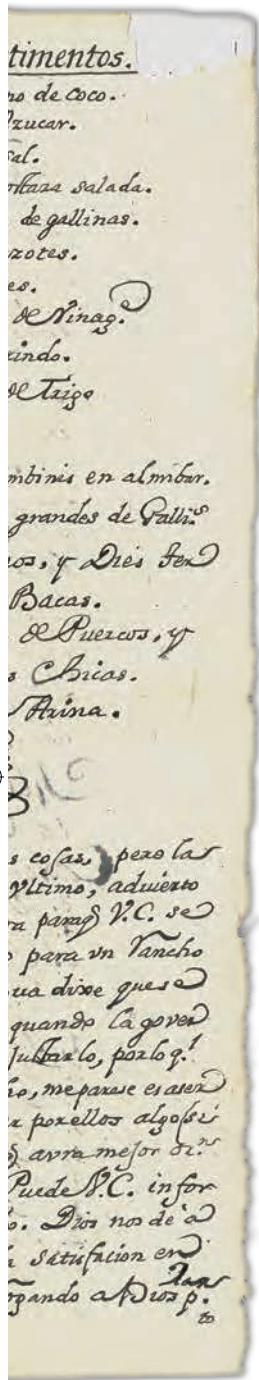 timentos.
no de Coco.
Azucar.
Sal.
ostaza salada.
de gallinas.
zotes.
es.
de Vinag.e
rindo.
de Trigo
mbinis en almibar.
grandes de Galli.s
os, y Dies ter
Bacas.
de Puercos, y
s Chicas.
Arina.
s cosas, pero las
vltimo, advierto
ra para q V.C. se
o para vn Rancho
ua dixe que se
quando la gover
Justarlo, por lo q.l
ho, me parese es aser
r por ellos algo si
q avra mejor
Puede V.C. infor
o. Dios nos de â
a satisfacion en
rogando a Dios p.
to